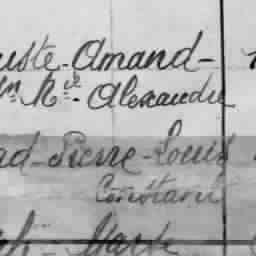 uste-Amand-
Nel- Alexandre
ad-Pierre-Louis
Constant
Marie